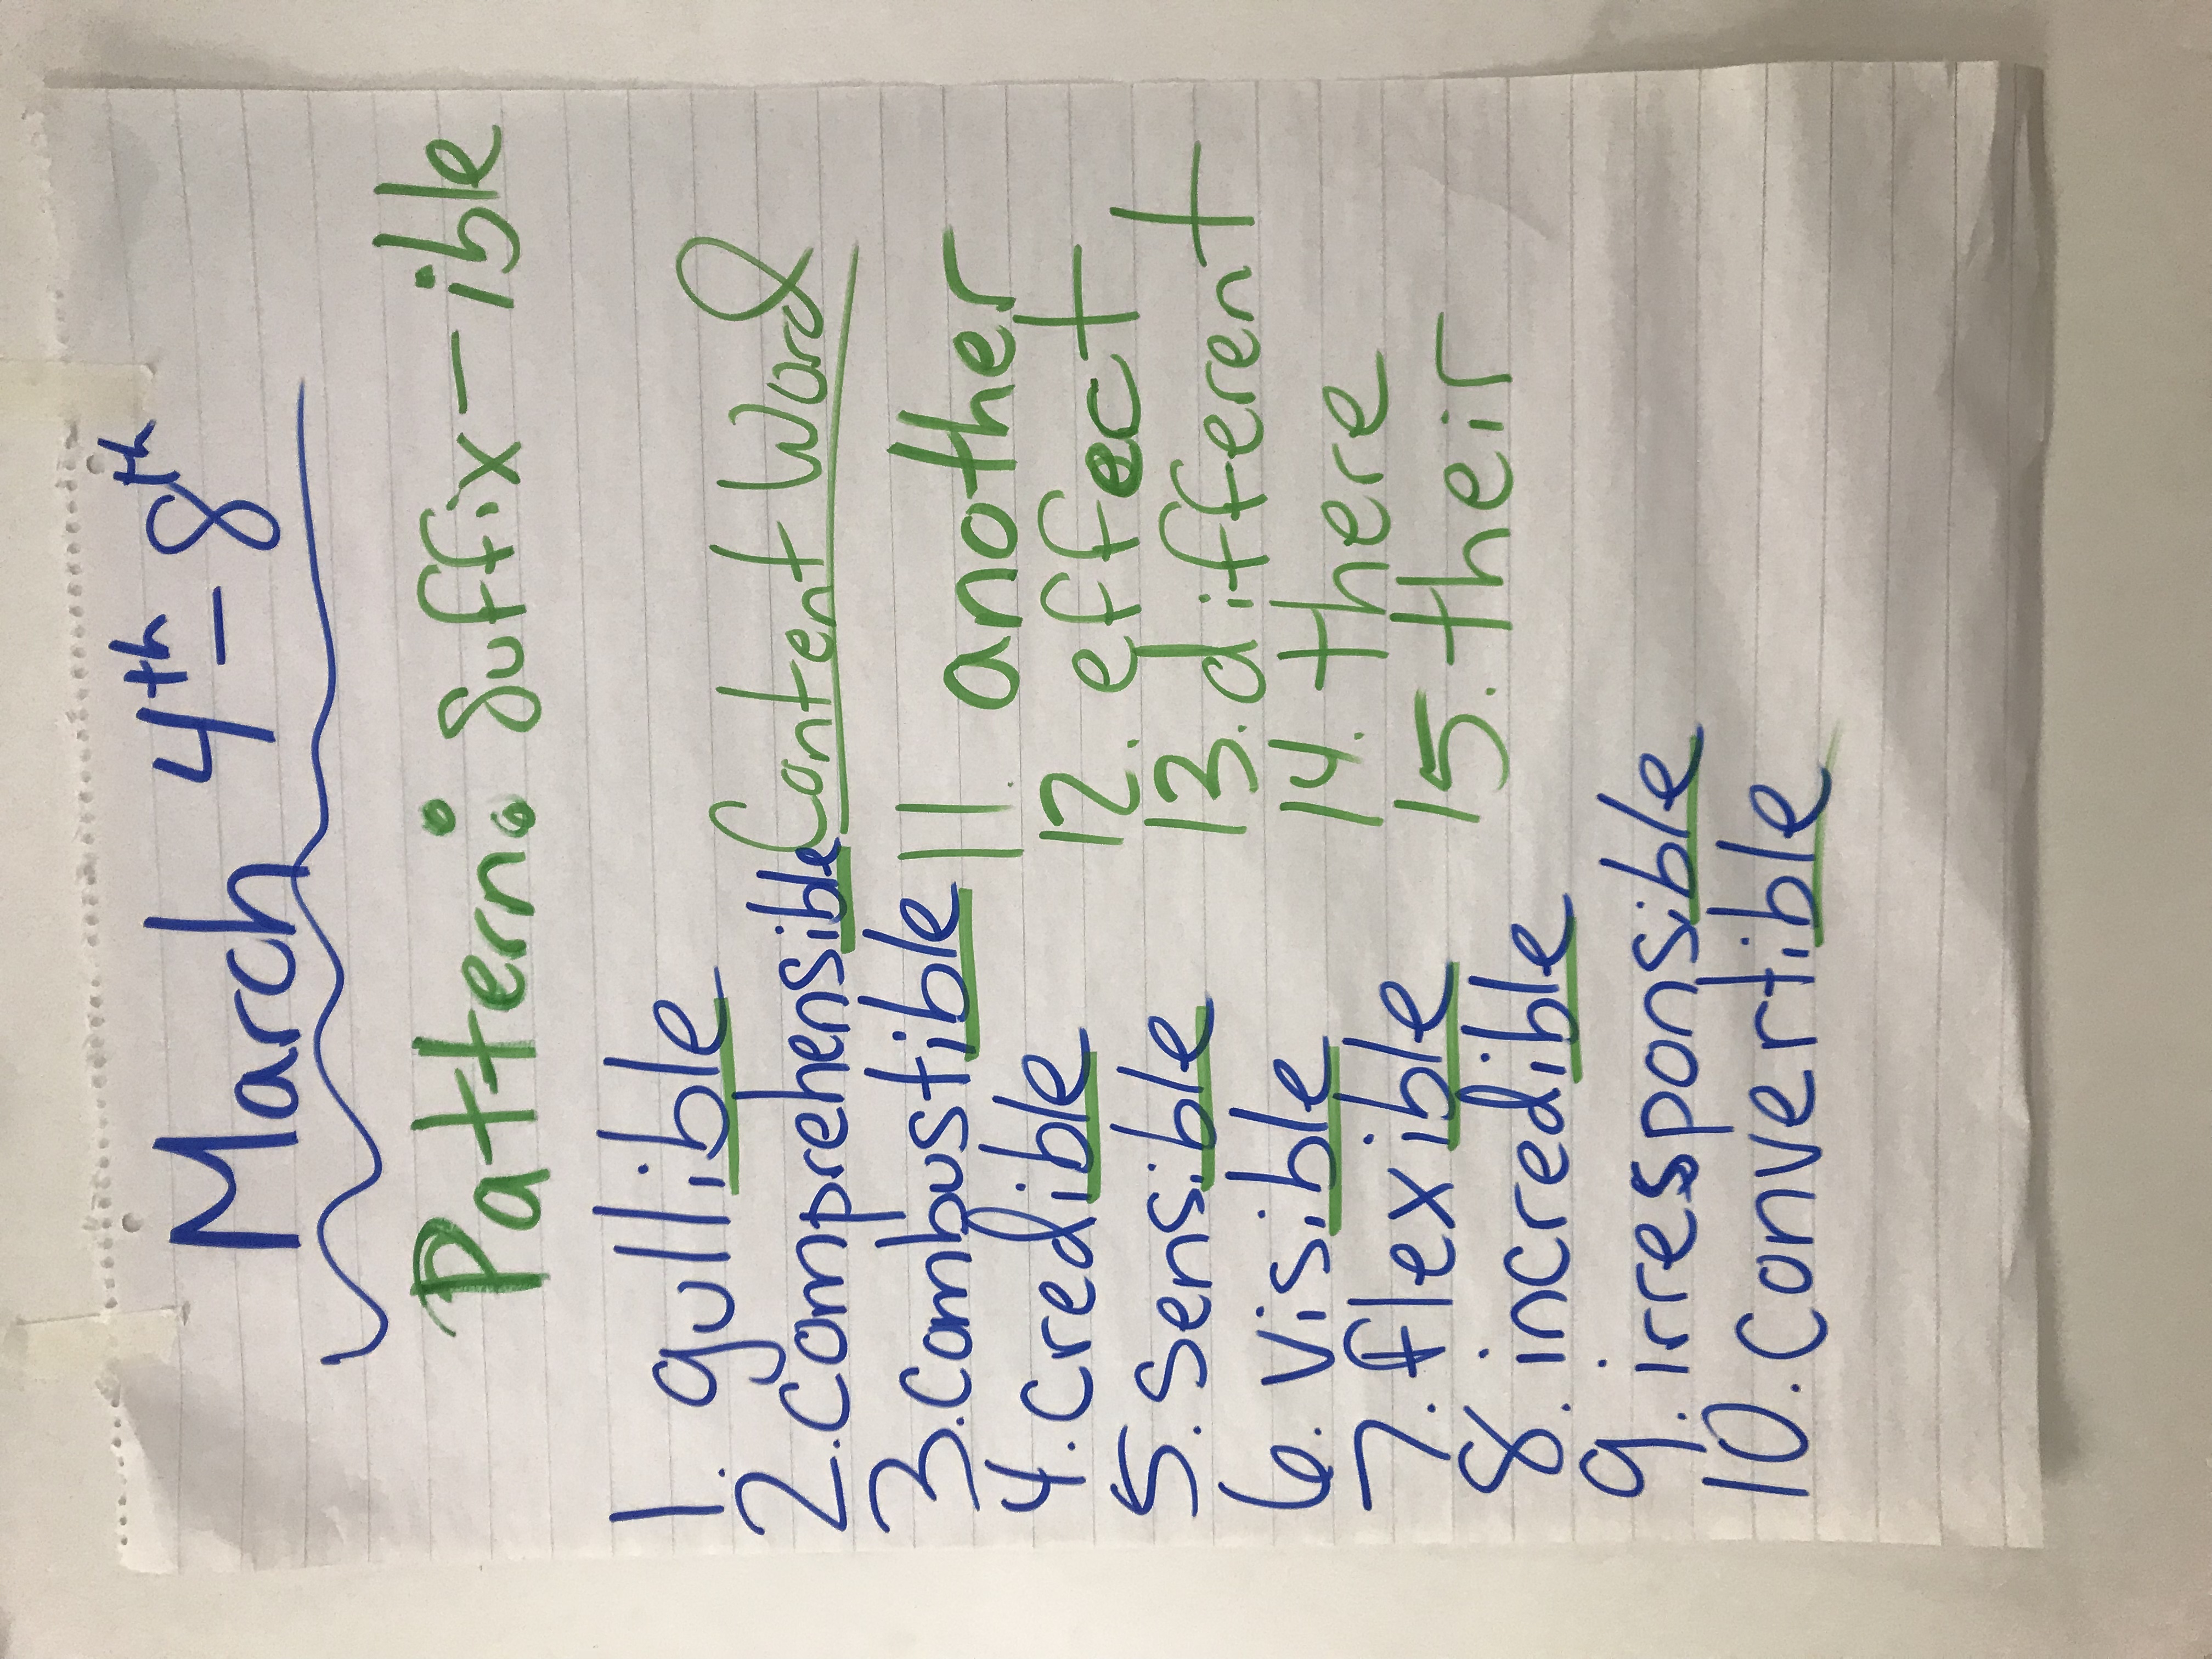 March 4th - 8th
Pattern: suffix - ible
1. gullible
2. Comprehensible
3. Combustible
4. Credible
5. Sensible
6. Visible
7. flexible
8. incredible
9. irresponsible
10. Convertible
Content Word
11. another
12. effect
13. different
14. there
15. their